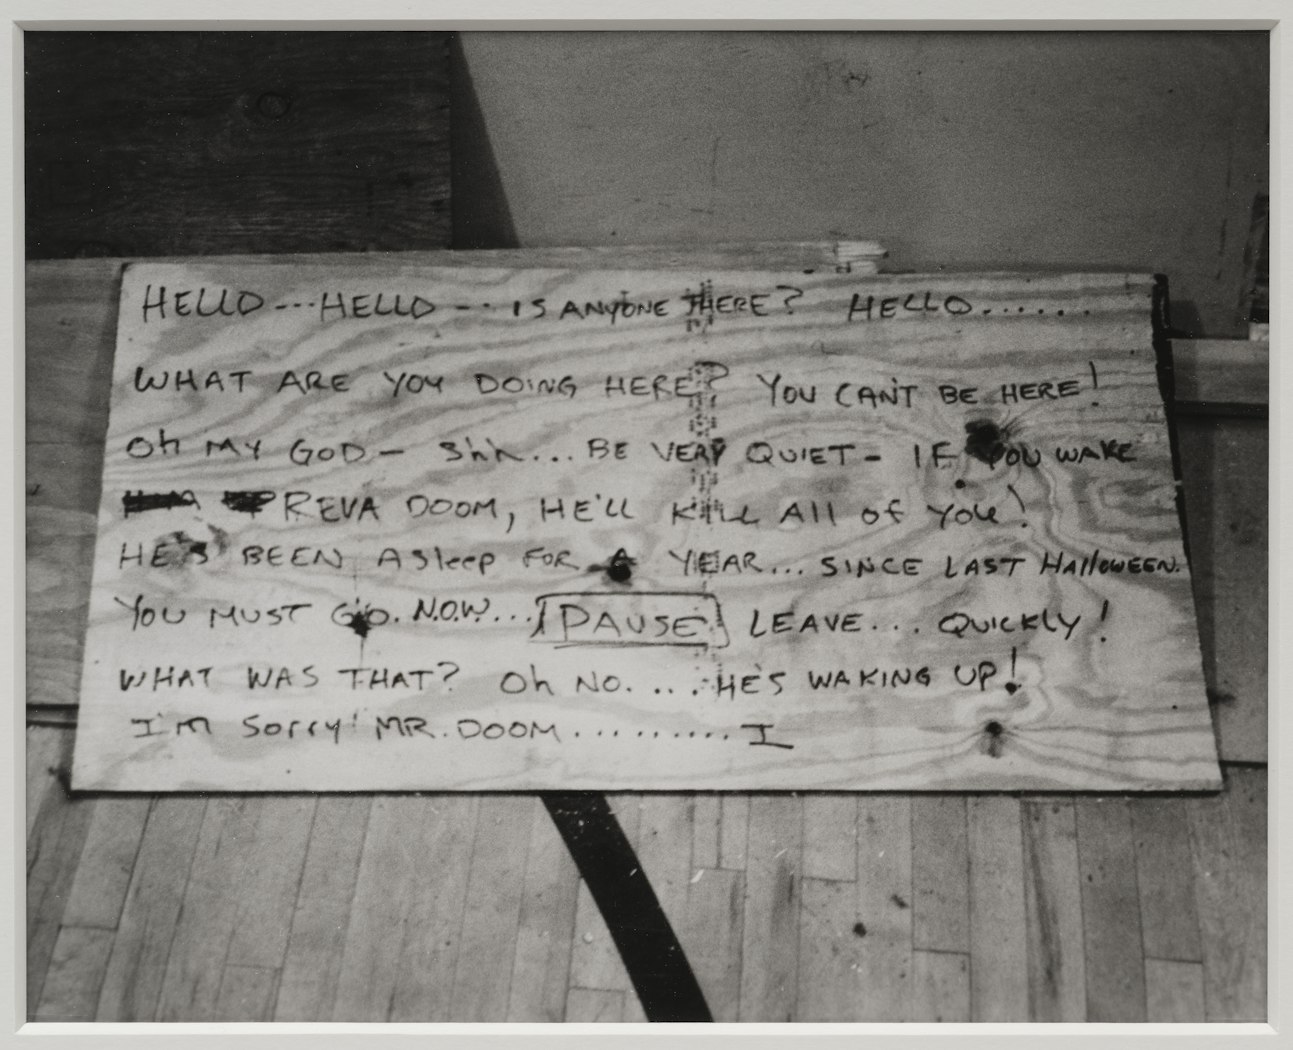 HELLO---HELLO--- IS ANYONE THERE? HELLO......
WHAT ARE YOU DOING HERE? YOU CAN'T BE HERE!
Oh MY GOD- Shh... BE VERY QUIET- IF YOU WAKE
REVA DOOM, HE'LL KILL All of YOU!
HE'S BEEN ASleep FOR A YEAR... SINCE LAST HAlloWEEN.
YOU MUST GO. N.O.W... [PAUSE] LEAVE... QUICKLY!
WHAT WAS THAT? Oh NO.... HE'S WAKING UP!
I'm Sorry! MR. DOOM.......... I